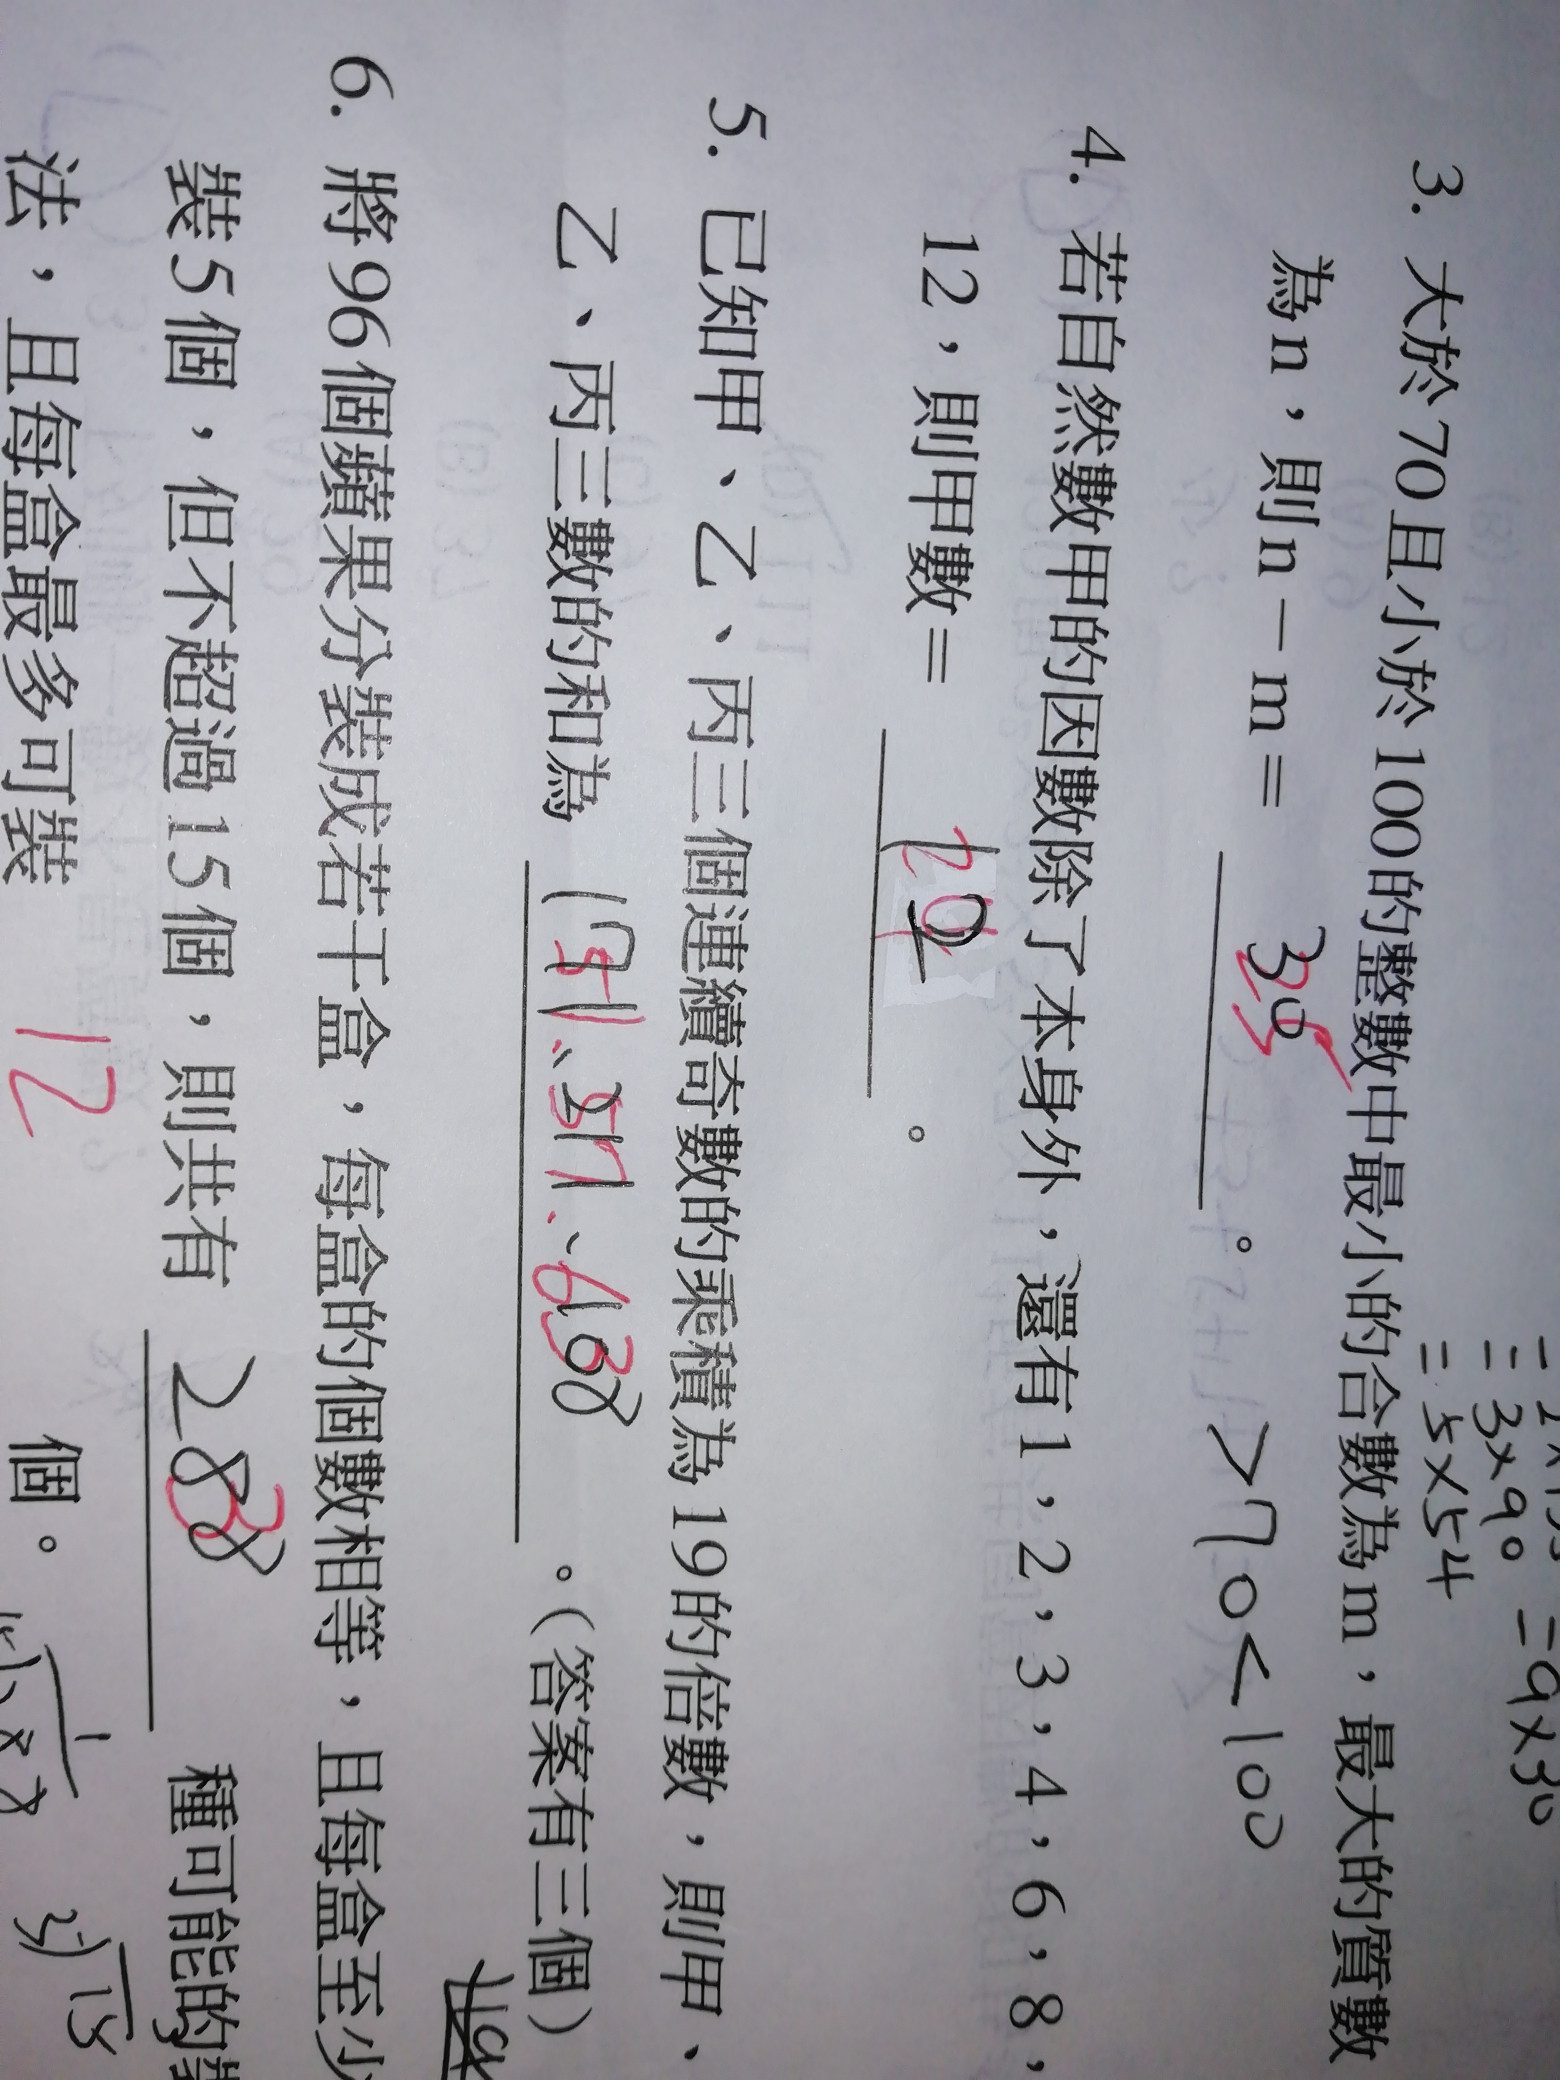 =3×90 =9×30
=5×54
3. 大於70且小於100的整數中最小的合數為m，最大的質數
為n，則n－m＝ 25 。
>70<100
4. 若自然數甲的因數除了本身外，還有1，2，3，4，6，8，
12，則甲數＝ 24 。
5. 已知甲、乙、丙三個連續奇數的乘積為19的倍數，則甲、
乙、丙三數的和為 51、57、63 。（答案有三個）
6. 將96個蘋果分裝成若干盒，每盒的個數相等，且每盒至少
裝5個，但不超過15個，則共有 3 種可能的裝
法，且每盒最多可裝 12 個。